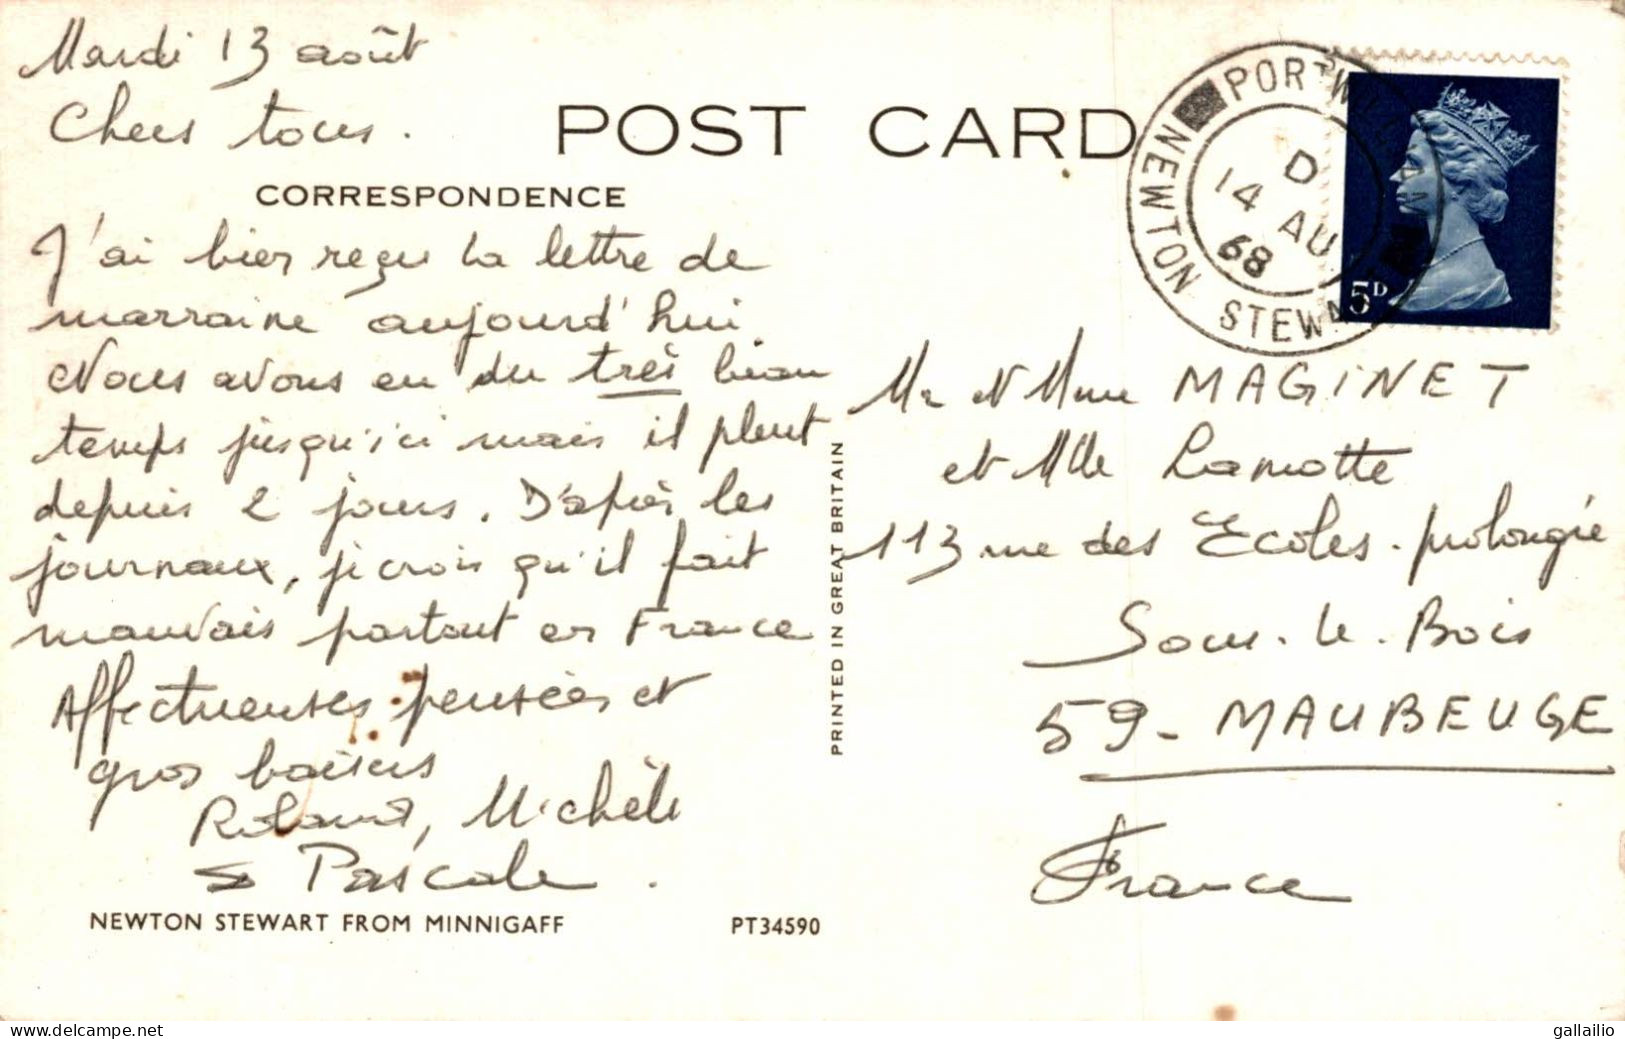 Mardi 13 août
Chers tous.
POST CARD
CORRESPONDENCE
J'ai bien reçu la lettre de
marraine aujourd'hui
Nous avons eu du très beau
temps jusqu'ici mais il pleut
depuis 2 jours. D'après les
journaux, je crois qu'il fait
mauvais partout en France
Affectueuses pensées et
gros baisers
Roland, Michèle
et Pascale.
NEWTON STEWART FROM MINNIGAFF
PT34590
PRINTED IN GREAT BRITAIN
PORT WILLIAM
NEWTON STEWART
D
14 AU
68
5D
Mr et Mme MAGINET
et Mlle Lamotte
113 rue des Ecoles. prolongée
Sous-le-Bois
59- MAUBEUGE
France
www.delcampe.net
gallailio